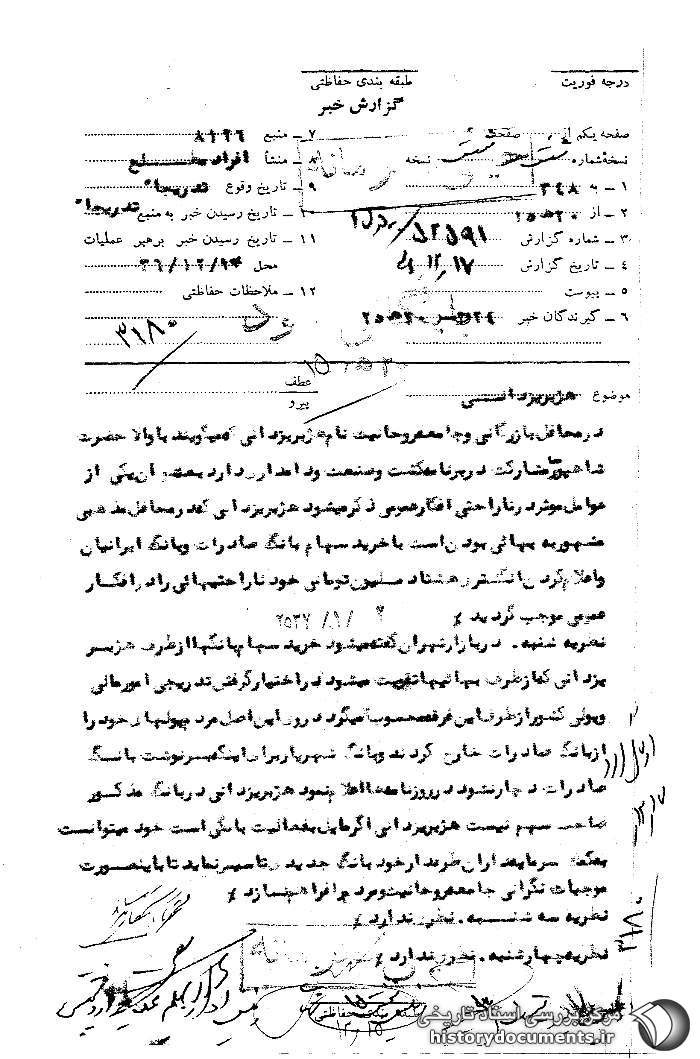 درجه فوریت
طبقه بندی حفاظتی
گزارش خبر
صفحه یکم از صفحه
نسخه شماره نسخه
۱ – به ۳۴۸
۲ – از ۲۵ه۲۰
۳ – شماره گزارش ۵۲۵۹۱
۴ – تاریخ گزارش ۱۷
۵ – پیوست
۶ – گیرندگان خبر
۷ – منبع ۸۱۲۶
۸ – منشأ افراد مطلع
۹ – تاریخ وقوع تدریجا"
۱۰ – تاریخ رسیدن خبر به منبع تدریجا"
۱۱ – تاریخ رسیدن خبر برهبر عملیات
محل ۳۶/۱۲/۱۴
۱۲ – ملاحظات حفاظتی
۳۱۸۰
عطف
پیرو
موضوع هژبر یزدانی
در محافل بازرگانی و جامعه روحانیت نام هژبر یزدانی که میگویند با والا حضرت
شاهپور مشارکت در برنامه کشت و صنعت و دامداری دارد بعنوان یکی از
عوامل موثر در ناراحتی افکار عمومی ذکر میشود هژبر یزدانی که در محافل مذهبی
مشهور به بهائی بودن است با خرید سهام بانک صادرات و بانک ایرانیان
و اعلام کردن انگشتر هشتاد ملیون تومانی خود ناراحتیهائی را در افکار
عمومی موجب گردید ٪
۲ /۱/ ۲۵۳۷
نظریه شنبه. در بازار تهران گفته میشود خرید سهام بانکها از طرف هژبر
یزدانی که از طرف بهائیها تقویت میشود در اختیار گرفتن تدریجی امور مالی
و پولی کشور از طرف این فرقه محسوب میگردد روی این اصل مردم پولهای خود را
از بانک صادرات خارج کردند و بانک شهریار برای اینکه بسرنوشت بانک
صادرات دچار نشود در روزنامه‌ها اعلام نمود هژبر یزدانی در بانک مذکور
صاحب سهم نیست هژبر یزدانی اگر مایل بفعالیت بانکی است خود میتوانست
بکمک سرمایه‌داران طرفدار خود بانک جدیدی تاسیس نماید تا باینصورت
موجبات نگرانی جامعه روحانیت و مردم را فراهم نسازد ٪
نظریه سه شنبه. نظری ندارد ٪
نظریه چهارشنبه. نظری ندارد ٪
۳۱۸۰
طبقه بندی حفاظتی
مرکز بررسی اسناد تاریخی
historydocuments.ir